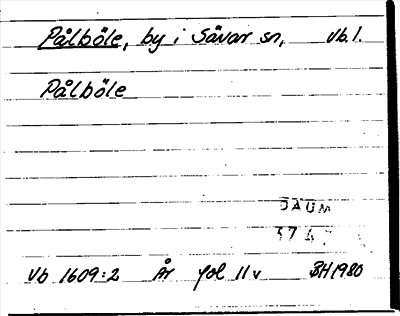 Pålböle, by i Sävar sn, Vb.l.
Pålböle
DAUM
Vb 1609:2 År fol 11v BH1980